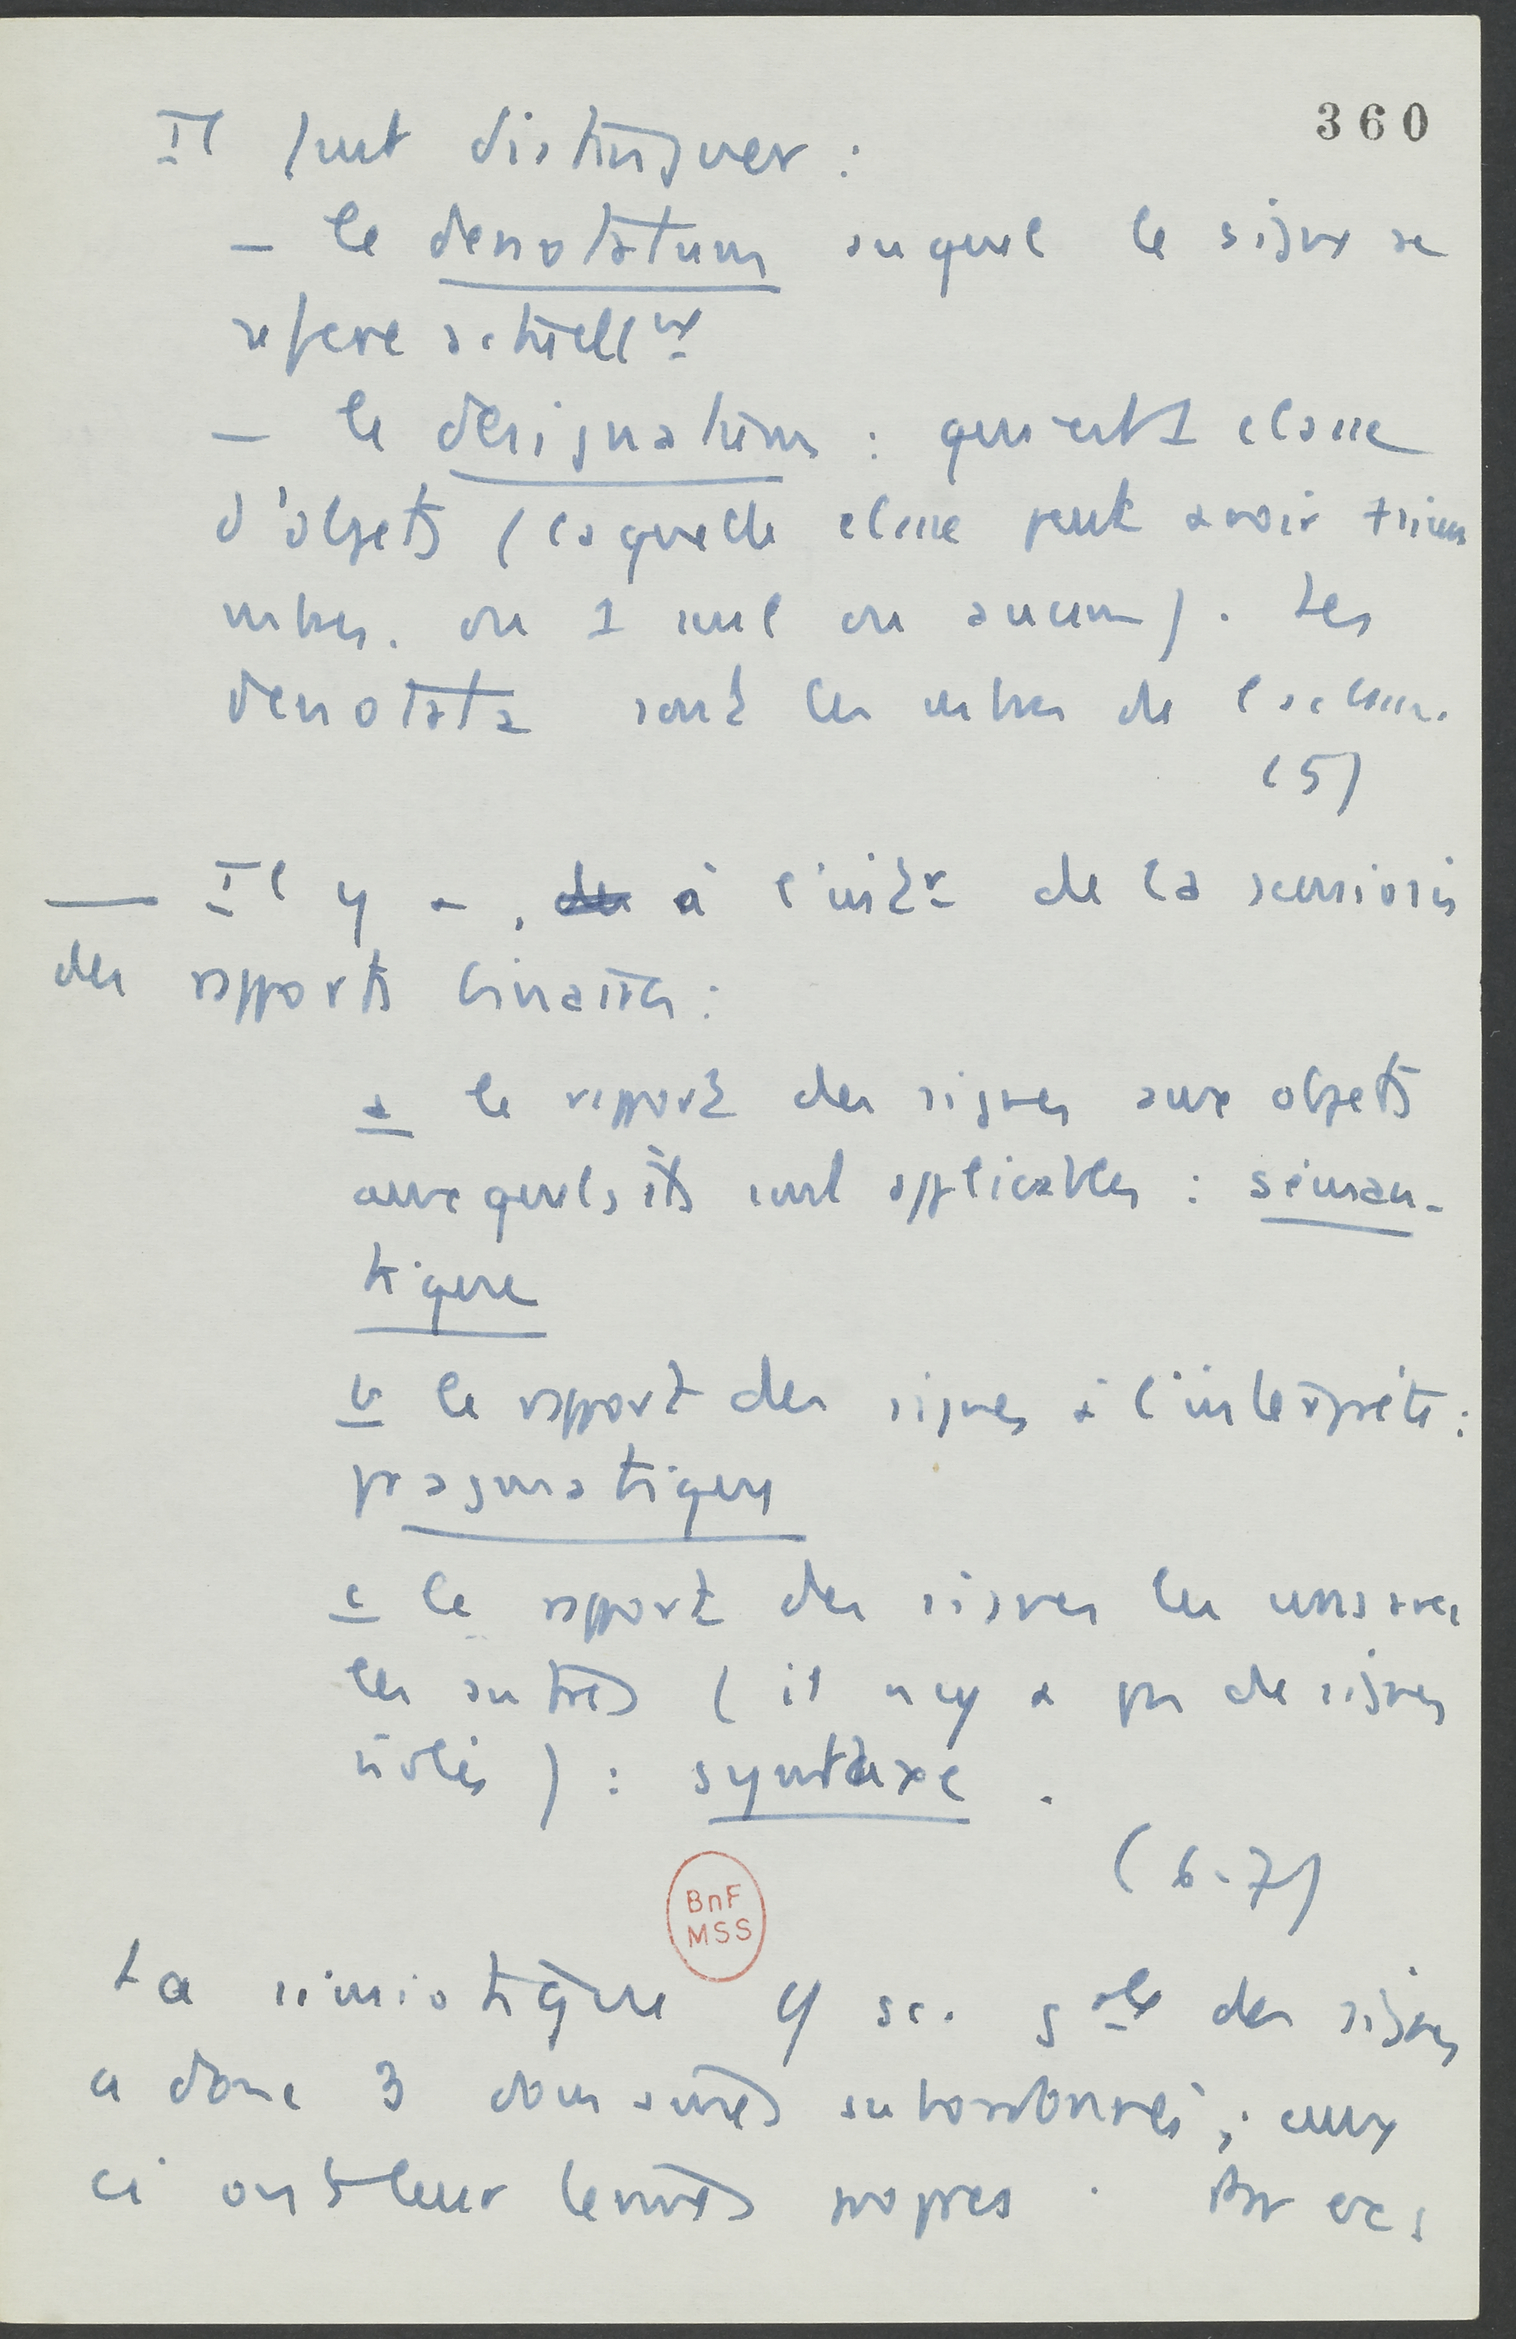 360
Il faut distinguer :
— le denotatum auquel le signe se
refere actuellt
— le designatum : qui est 1 classe
d'objets (laquelle classe peut avoir +sieurs
mbres. ou 1 seul ou aucun). Les
denotata sont les mbres de la classe.
(5)
— Il y a, de à l'intr de la semiosis
des rapports binaires :
a le rapport des signes aux objets
auxquels ils sont applicables : séman-
tique
b le rapport des signes à l'interprète :
pragmatique
c le rapport des signes les uns avec
les autres (il n'y a pas de signes
isolés) : syntaxe .
(6-7)
BnF
MSS
La sémiotique sc. gale des signes
a donc 3 domaines subordonnés ; ceux
ci ont leur termes propres . Par ex ;